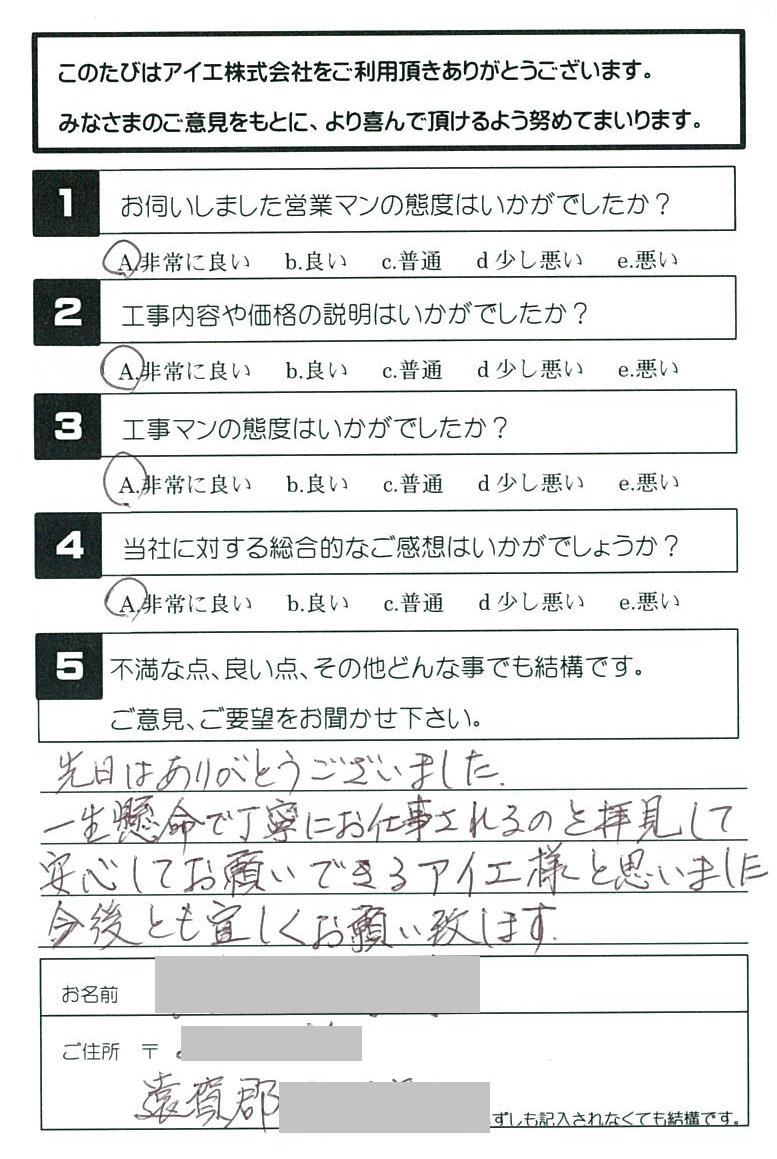 このたびはアイエ株式会社をご利用頂きありがとうございます。
みなさまのご意見をもとに、より喜んで頂けるよう努めてまいります。
1 お伺いしました営業マンの態度はいかがでしたか？
A.非常に良い b.良い c.普通 d 少し悪い e.悪い
2 工事内容や価格の説明はいかがでしたか？
A.非常に良い b.良い c.普通 d 少し悪い e.悪い
3 工事マンの態度はいかがでしたか？
A.非常に良い b.良い c.普通 d 少し悪い e.悪い
4 当社に対する総合的なご感想はいかがでしょうか？
A.非常に良い b.良い c.普通 d 少し悪い e.悪い
5 不満な点、良い点、その他どんな事でも結構です。
ご意見、ご要望をお聞かせ下さい。
先日はありがとうございました.
一生懸命で丁寧にお仕事されるのを拝見して
安心してお願いできるアイエ様と思いました
今後とも宜しくお願い致します.
お名前
ご住所 〒
遠賀郡
ずしも記入されなくても結構です。